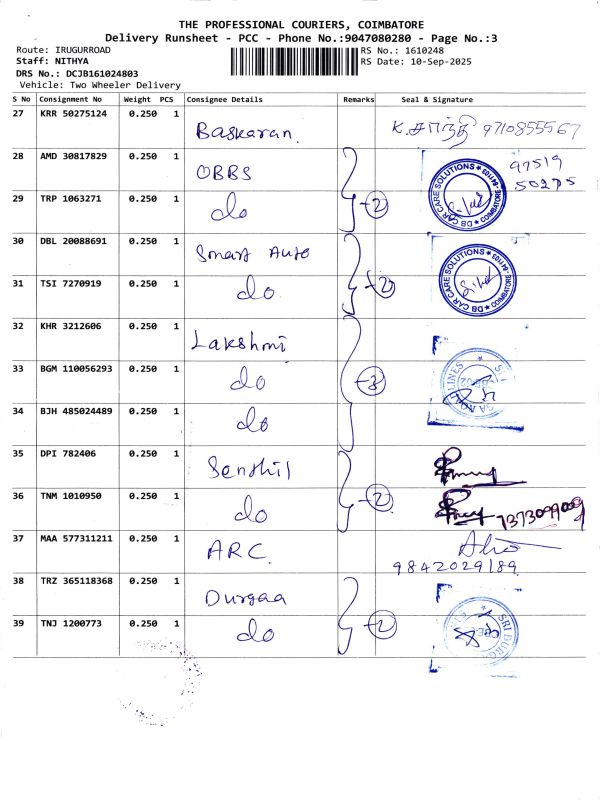 THE PROFESSIONAL COURIERS, COIMBATORE
Delivery Runsheet - PCC - Phone No.:9047080280 - Page No.:3
Route: IRUGURROAD
Staff: NITHYA
DRS No.: DCJB161024803
Vehicle: Two Wheeler Delivery
RS No.: 1610248
RS Date: 10-Sep-2025
S No Consignment No Weight PCS Consignee Details Remarks Seal & Signature
27 KRR 50275124 0.250 1 Baskaran K. சாந்தி 9710855567
28 AMD 30817829 0.250 1 OBBS 97519 50275
29 TRP 1063271 0.250 1 do 2 DB CAR CARE SOLUTIONS COIMBATORE
30 DBL 20088691 0.250 1 Smart Auto
31 TSI 7270919 0.250 1 do 2 DB CAR CARE SOLUTIONS COIMBATORE
32 KHR 3212606 0.250 1 Lakshmi
33 BGM 110056293 0.250 1 do 3
34 BJH 485024489 0.250 1 do
35 DPI 782406 0.250 1 Senthil
36 TNM 1010950 0.250 1 do 2 7373099009
37 MAA 577311211 0.250 1 ARC 9842029189
38 TRZ 365118368 0.250 1 Durgaa
39 TNJ 1200773 0.250 1 do 2 SRI DURGA